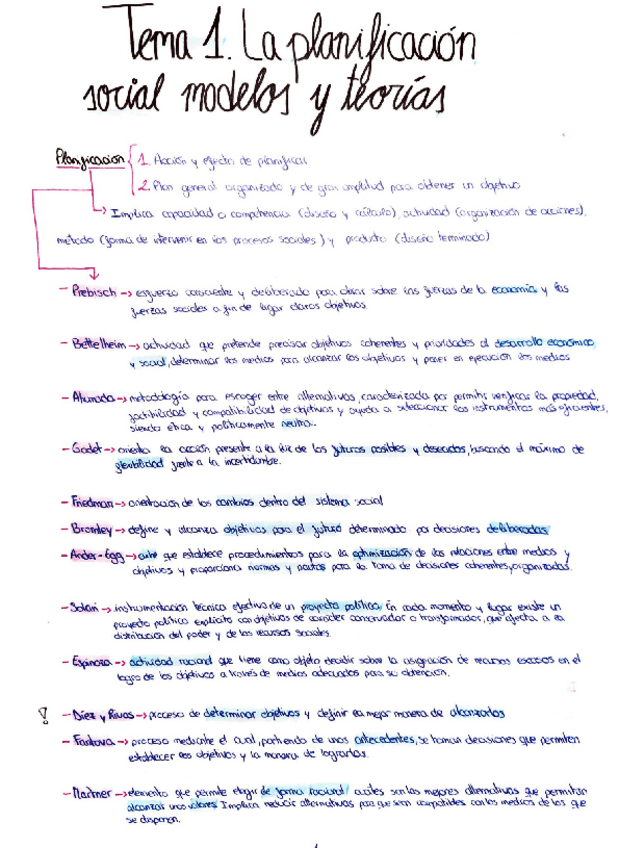 Tema 1. La planificación
social modelos y teorías
Planificación 1. Acción y efecto de planificar
2. Plan general organizado y de gran amplitud para obtener un objetivo
Implica capacidad o competencia (diseño y cálculo), actividad (organización de acciones),
método (forma de intervenir en los procesos sociales) y producto (diseño terminado)
- Prebisch → esfuerzo consciente y deliberado para obrar sobre las fuerzas de la economía y las
fuerzas sociales a fin de lograr claros objetivos.
- Bettelheim → actividad que pretende precisar objetivos coherentes y prioridades al desarrollo económico
y social, determinar los medios para alcanzar los objetivos y poner en ejecución dos medios
- Ahumada → metodología para escoger entre alternativas, caracterizada por permitir verificar la propiedad,
factibilidad y compatibilidad de objetivos y ayuda a seleccionar los instrumentos más eficientes,
siendo ética y políticamente neutra.
- Godet → orienta la acción presente a la luz de los futuros posibles y deseados, buscando el máximo de
flexibilidad frente a la incertidumbre.
- Friedman → orientación de los cambios dentro del sistema social
- Bromley → define y alcanza objetivos para el futuro determinado por decisiones deliberadas
- Ander-Egg → arte que establece procedimientos para la optimización de las relaciones entre medios y
objetivos y proporciona normas y pautas para la toma de decisiones coherentes, organizadas.
- Solari → instrumentación técnica efectiva de un proyecto político. En cada momento y lugar existe un
proyecto político explícito con objetivos de carácter conservador o transformador, que afecta a la
distribución del poder y de los recursos sociales.
- Espinoza → actividad racional que tiene como objeto decidir sobre la asignación de recursos escasos en el
logro de los objetivos a través de medios adecuados para su obtención.
! - Díez y Rivas → proceso de determinar objetivos y definir la mejor manera de alcanzarlos
- Fantova → proceso mediante el cual, partiendo de unos antecedentes, se toman decisiones que permiten
establecer los objetivos y la manera de lograrlos.
- Martner → elemento que permite elegir de forma racional cuáles son las mejores alternativas que permitan
alcanzar unos valores. Implica reducir alternativas para que sean compatibles con los medios de los que
se disponen.